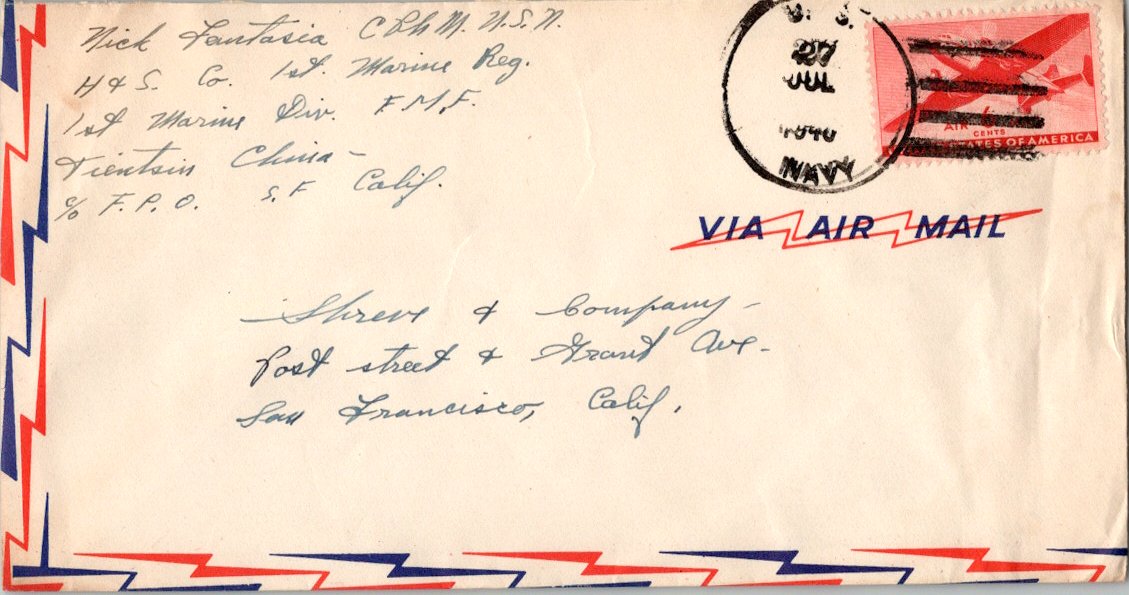 Nick Fantasia C Ph M. U.S.N.
H & S. Co. 1st. Marine Reg.
1st Marine Div. F.M.F.
Tientsin China -
c/o F.P.O. S.F Calif.
U. S.
27
JUL
1946
NAVY
AIR 6
CENTS
UNITED STATES OF AMERICA
VIA AIR MAIL
- Shreve & Company -
Post street & Grant Ave.
San Francisco, Calif.